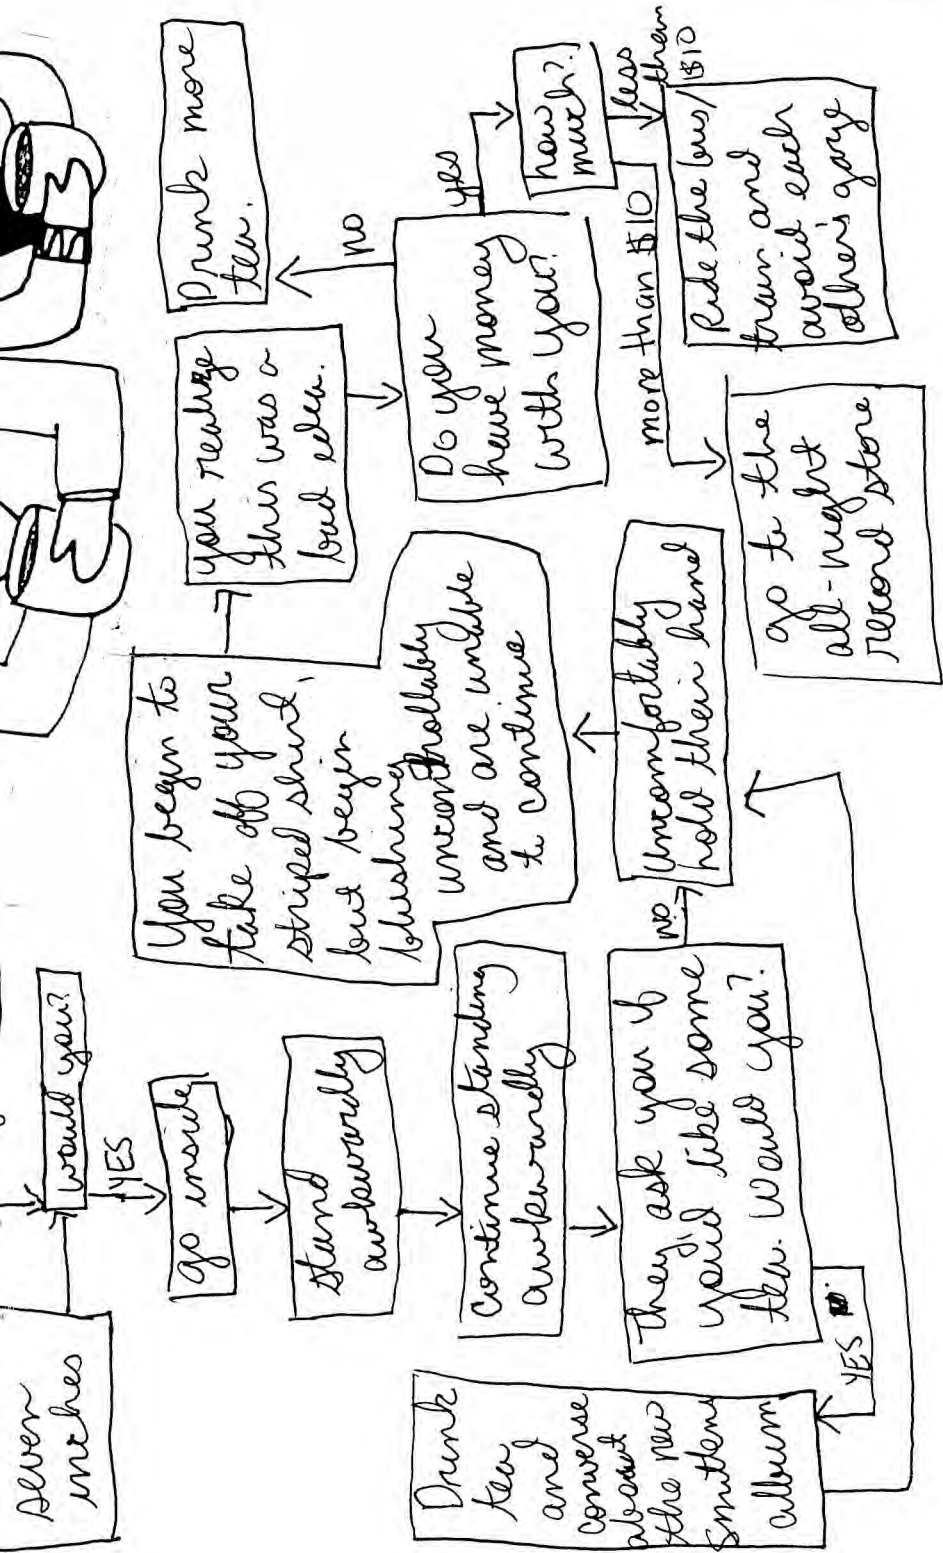 seven
inches
would you?
YES
go inside
stand
awkwardly
continue standing
awkwardly
They ask you if
you'd like some
tea. Would you?
YES
Drink
tea
and
converse
about
the new
Smittens
album
no
Uncomfortably
hold their hand
You begin to
take off your
striped shirt,
but begin
blushing
uncontrollably
and are unable
to continue
you realize
this was a
bad idea.
Do you
have money
with you?
no
Drink more
tea.
yes
how
much?
less
than
$10
Ride the bus/
train and
avoid each
other's gaze
more than $10
go to the
all-night
record store